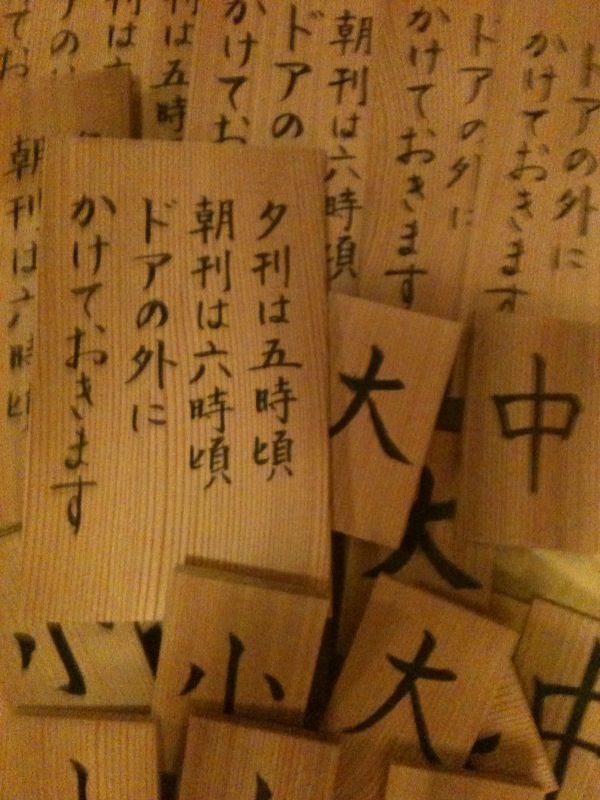 夕刊は五時頃
朝刊は六時頃
ドアの外に
かけておきます
朝刊は六時頃
ドアの外に
かけておきます
ドアの外に
かけておきます
は五時
朝刊は六時頃
ドアの
かけてお
大
中
大
小
小
大
中